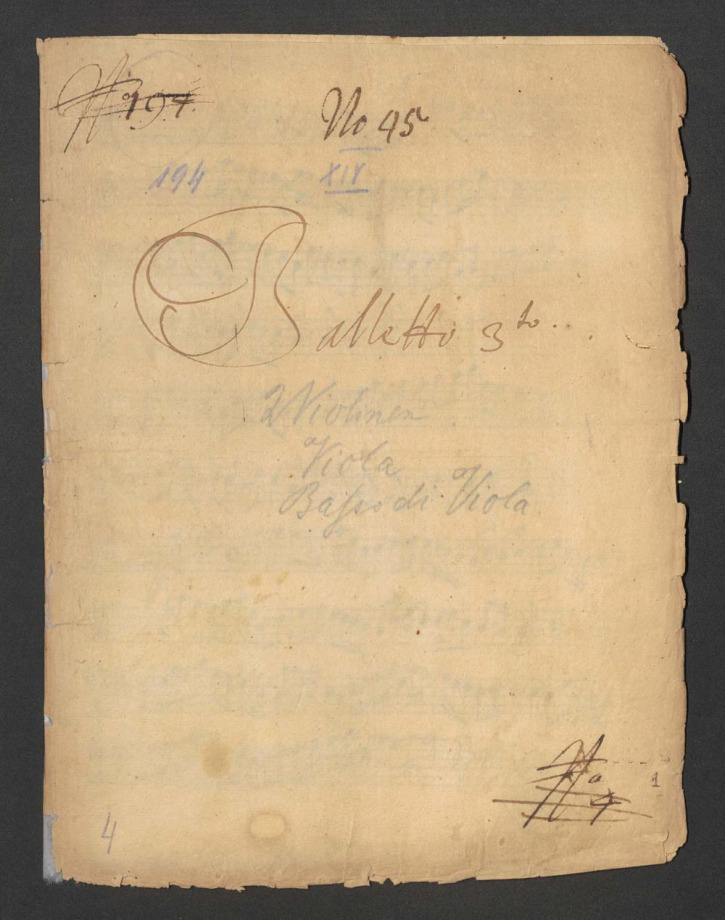 No 194.
No 45
194
XIV
Balletto 3to..
2 Violinen
Viola
Basso di Viola
No 4
1
4